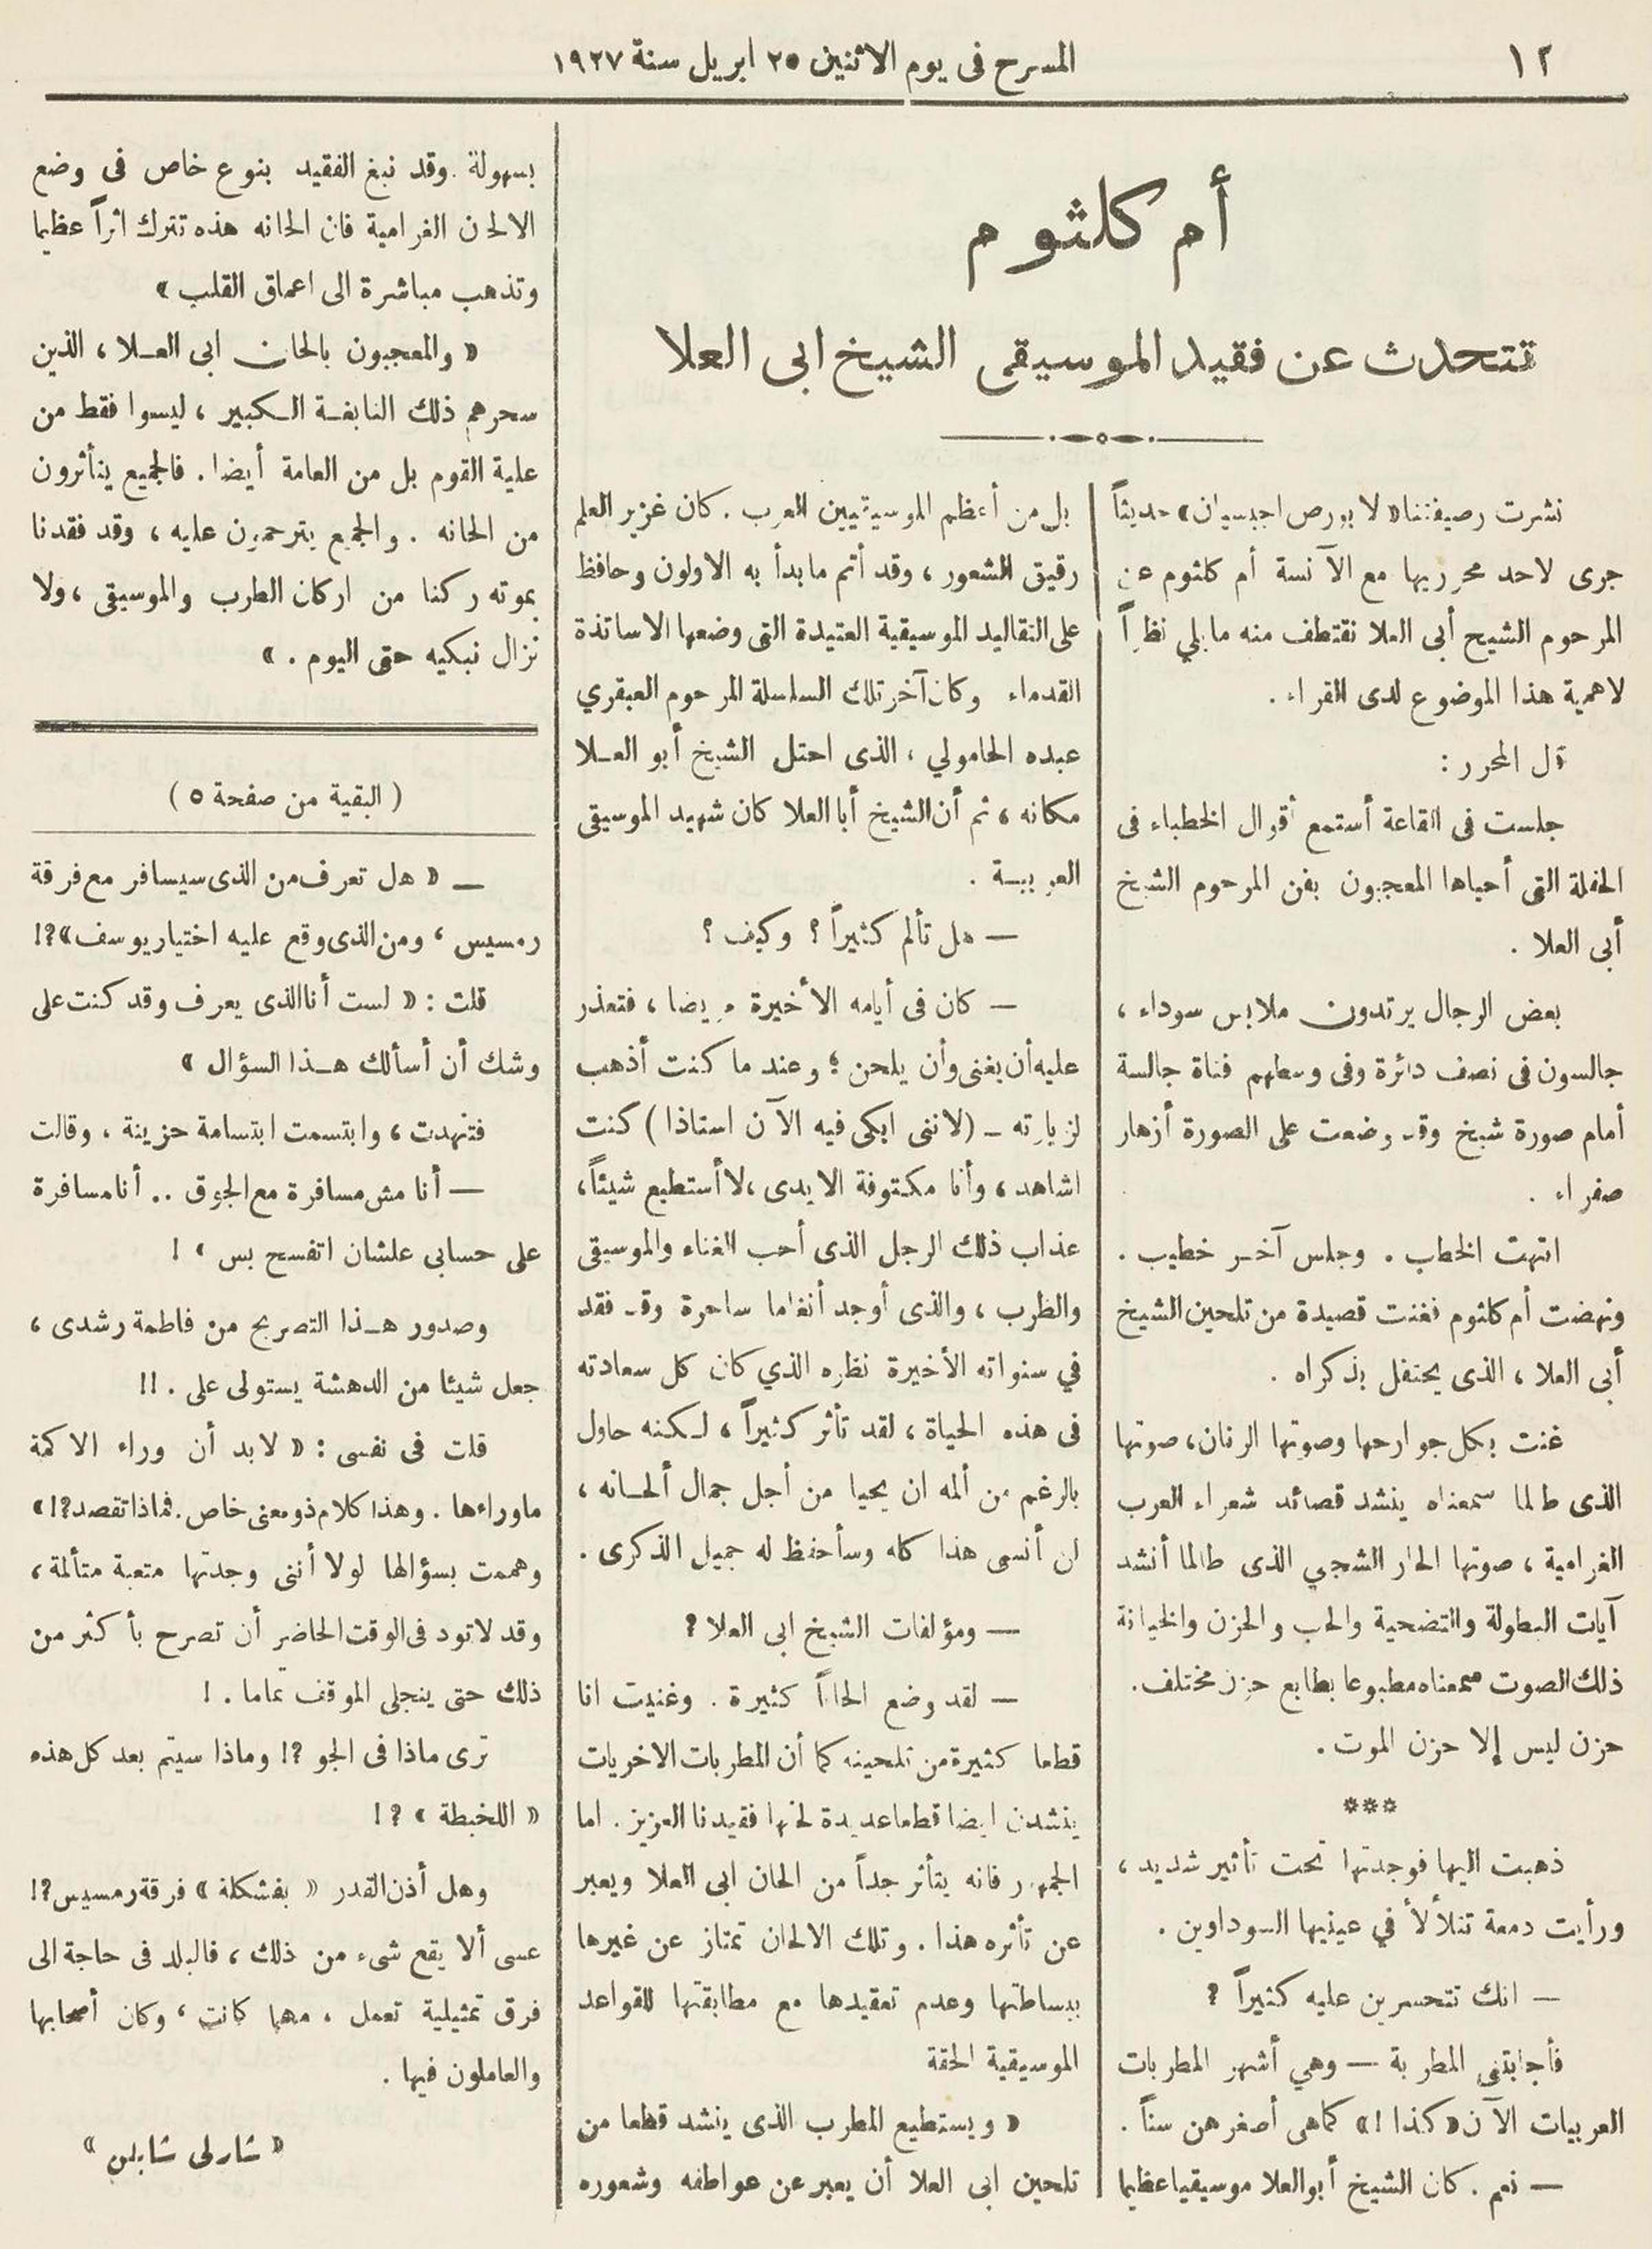 ١٢
المسرح فى يوم الاثنين ٢٥ ابريل سنة ١٩٢٧
أم كلثوم
تتحدث عن فقيد الموسيقى الشيخ ابى العلا
نشرت رصيفتنا « لا بورص اجبسيان » حديثاً
جرى لاحد محرريها مع الآنسة أم كلثوم عن
المرحوم الشيخ أبى العلا نقتطف منه ما يلي نظراً
لاهمية هذا الموضوع لدى القراء .
قال المحرر :
جلست فى القاعة أستمع أقوال الخطباء فى
الحفلة التى أحياها المعجبون بفن المرحوم الشيخ
أبى العلا .
بعض الرجال يرتدون ملابس سوداء ،
جالسون فى نصف دائرة وفى وسطهم فتاة جالسة
أمام صورة شيخ وقد وضعت على الصورة أزهار
صفراء .
انتهت الخطاب . وجلس آخر خطيب .
ونهضت أم كلثوم فغنت قصيدة من تلحين الشيخ
أبى العلا ، الذى يحتفل بذكراه .
غنت بكل جوارحها وصوتها الرنان ، صوتها
الذى طالما سمعناه ينشد قصائد شعراء العرب
الغرامية ، صوتها الحار الشجي الذى طالما أنشد
آيات البطولة والتضحية والحب والحزن والخيانة
ذلك الصوت سمعناه مطبوعا بطابع حزن مختلف .
حزن ليس إلا حزن الموت .
***
ذهبت اليها فوجدتها تحت تأثير شديد ،
ورأيت دمعة تتلألأ في عينيها السوداوين .
— انك تتحسرين عليه كثيراً ؟
فأجابتنى المطربة — وهي أشهر المطربات
العربيات الآن « كذا ! » كما هى أصغرهن سناً .
— نعم . كان الشيخ أبو العلا موسيقيا عظيما
بل من أعظم الموسيقيين العرب . كان غزير العلم
رقيق الشعور ، وقد أتم ما بدأ به الاولون وحافظ
على التقاليد الموسيقية العتيدة التى وضعها الاساتذة
القدماء وكان آخر تلك السلسلة المرحوم العبقري
عبده الحامولي ، الذى احتل الشيخ أبو العـلا
مكانه ، ثم أن الشيخ أبا العلا كان شهيد الموسيقى
العربيـة .
— هل تألم كثيراً ؟ وكيف ؟
— كان فى أيامه الأخيرة مريضا ، فتعذر
عليه أن يغنى وأن يلحن ؛ وعند ما كنت أذهب
لزيارته ـ ( لاننى ابكى فيه الآن استاذا ) كنت
اشاهد ، وأنا مكتوفة الايدى ، لا أستطيع شيئاً ،
عذاب ذلك الرجل الذى أحب الغناء والموسيقى
والطرب ، والذى أوجد أنغاما ساحرة وقد فقد
في سنواته الأخيرة نظره الذي كان كل سعادته
فى هذه الحياة ، لقد تأثر كثيراً ، لـكنه حاول
بالرغم من ألمه ان يحيا من أجل جمال ألحـانه ،
لن أنسى هذا كله وسأحفظ له جميل الذكرى .
— ومؤلفات الشيخ ابى العلا ؟
— لقد وضع الحاناً كثيرة . وغنيت انا
قطعا كثيرة من تلحينه كما أن المطربات الاخريات
ينشدن ايضا قطعا عديدة لحنها فقيدنا العزيز . اما
الجمهور فانه يتأثر جداً من الحان ابى العلا ويعبر
عن تأثره هذا . وتلك الالحان تمتاز عن غيرها
ببساطتها وعدم تعقيدها مع مطابقتها للقواعد
الموسيقية الحقة
« ويستطيع المطرب الذى ينشد قطعا من
تلحين ابى العلا أن يعبر عن عواطفه وشعوره
بسهولة . وقد نبغ الفقيد بنوع خاص فى وضع
الالحن الغرامية فان الحانه هذه تترك اثراً عظيما
وتذهب مباشرة الى اعماق القلب »
« والمعجبون بالحان ابى العـلا ، الذين
سحرهم ذلك النابغـة الـكبير ، ليسوا فقط من
علية القوم بل من العامة أيضا . فالجميع يتأثرون
من الحانه . والجميع يترحمون عليه ، وقد فقدنا
بموته ركنا من اركان الطرب والموسيقى ، ولا
نزال نبكيه حتى اليوم . »
( البقية من صفحة ٥ )
— « هل تعرف من الذى سيسافر مع فرقة
رمسيس ، ومن الذى وقع عليه اختيار يوسف » ؟!
قلت : « لست أنا الذى يعرف وقد كنت على
وشك أن أسألك هـذا السؤال »
فتنهدت ، وابتسمت ابتسامة حزينة ، وقالت
— أنا مش مسافرة مع الجوق .. أنا مسافرة
على حسابى علشان اتفسح بس » !
وصدور هـذا التصريح من فاطمة رشدى ،
جعل شيئا من الدهشة يستولى على . !!
قلت فى نفسى : « لابد أن وراء الاكمة
ماوراءها . وهذا كلام ذو معنى خاص . فماذا تقصد ؟! »
وهممت بسؤالها لولا أننى وجدتها متعبة متألمة ،
وقد لاتود فى الوقت الحاضر أن تصرح بأكثر من
ذلك حتى ينجلى الموقف تماما . !
ترى ماذا فى الجو ؟! وماذا سيتم بعد كل هذه
« اللخبطة » ؟!
وهل أذن القدر « بفشكلة » فرقة رمسيس ؟!
عسى ألا يقع شىء من ذلك ، فالبلد فى حاجة الى
فرق تمثيلية تعمل ، مهما كانت ، وكان أصحابها
والعاملون فيها .
« شارلى شابلن »